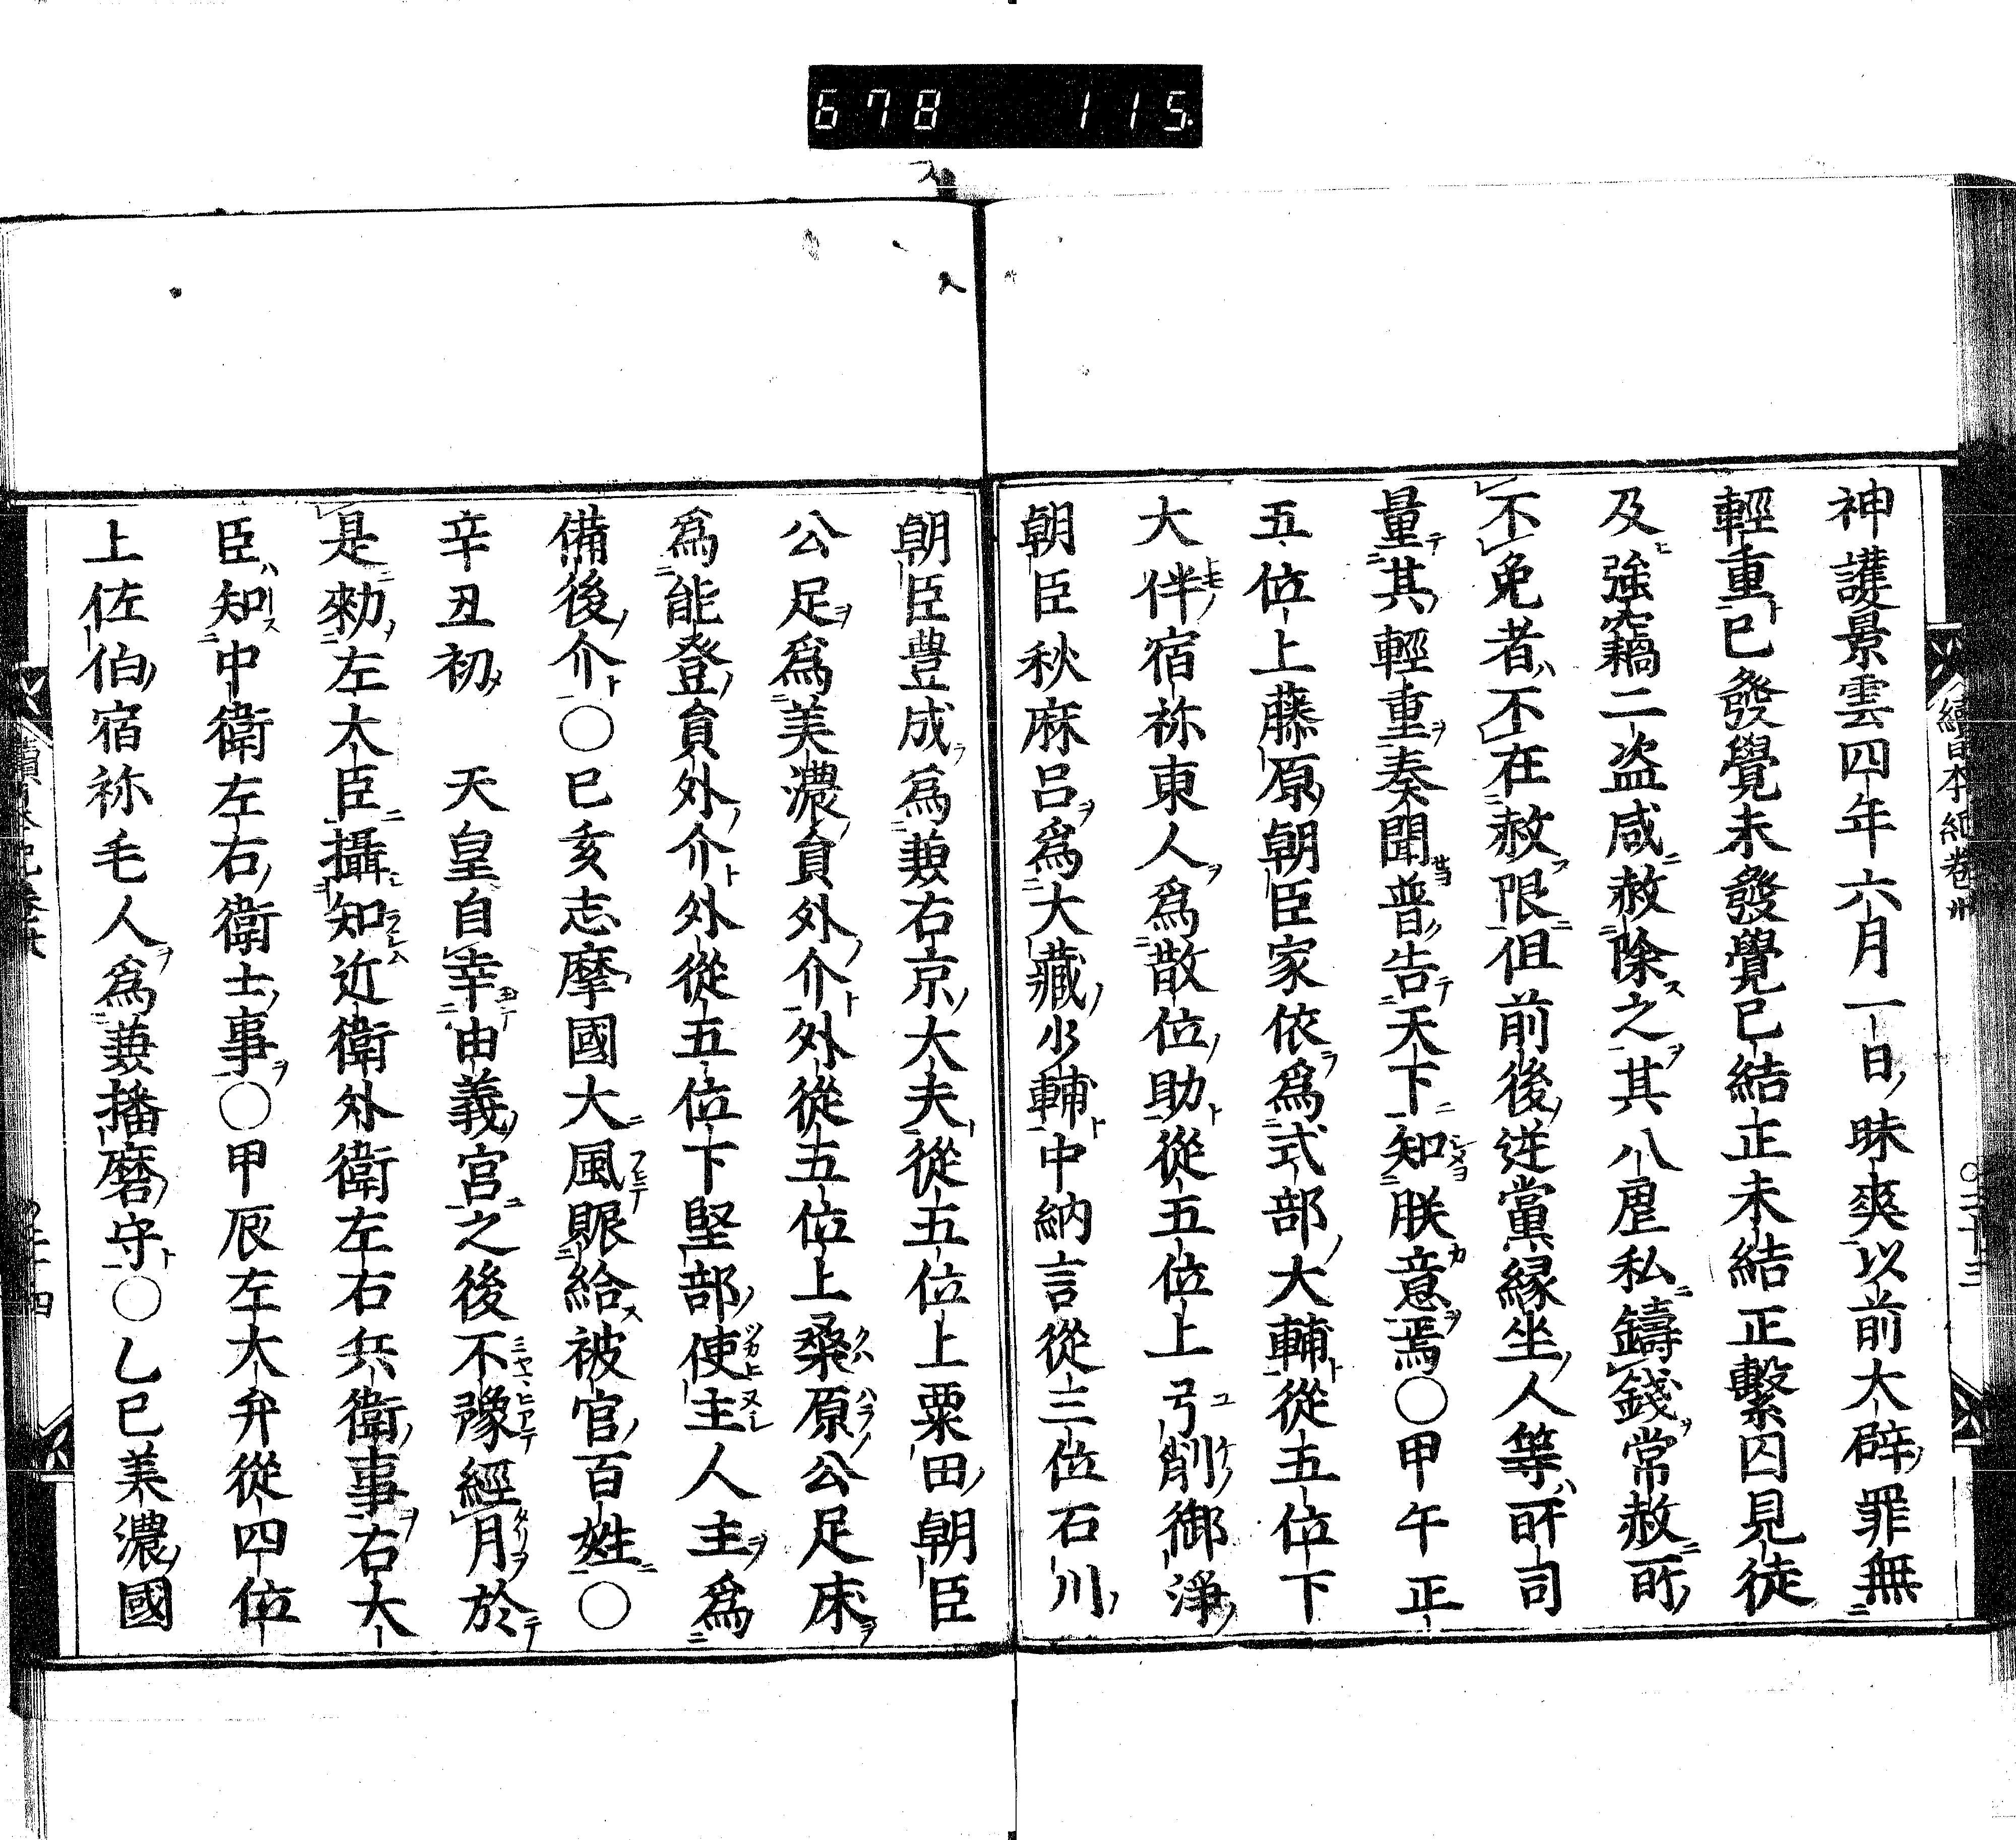 678 115
續日本紀卷卅
神護景雲四年六月一日昧爽以前大辟罪無
輕重已發覺未發覺已結正未結正繫囚見徒
及強竊二盗咸赦除之其八虐私鑄錢常赦所
不免者不在赦限但前後逆黨縁坐人等所司
量其輕重奏聞普告天下知朕意焉○甲午正
五位上藤原朝臣家依爲式部大輔從五位下
大伴宿祢東人爲散位助從五位上弓削御淨
朝臣秋麻呂爲大藏少輔中納言從三位石川
朝臣豊成爲兼右京大夫從五位上粟田朝臣
公足爲美濃員外介外從五位上桑原公足床
爲能登員外介外從五位下堅部使主人主爲
備後介○已亥志摩國大風賑給被官百姓○
辛丑初　天皇自幸由義宮之後不豫經月於
是勑左大臣攝知近衛外衛左右兵衛事右大
臣知中衛左右衛士事○甲辰左大弁從四位
上佐伯宿祢毛人爲兼播磨守○乙巳美濃國